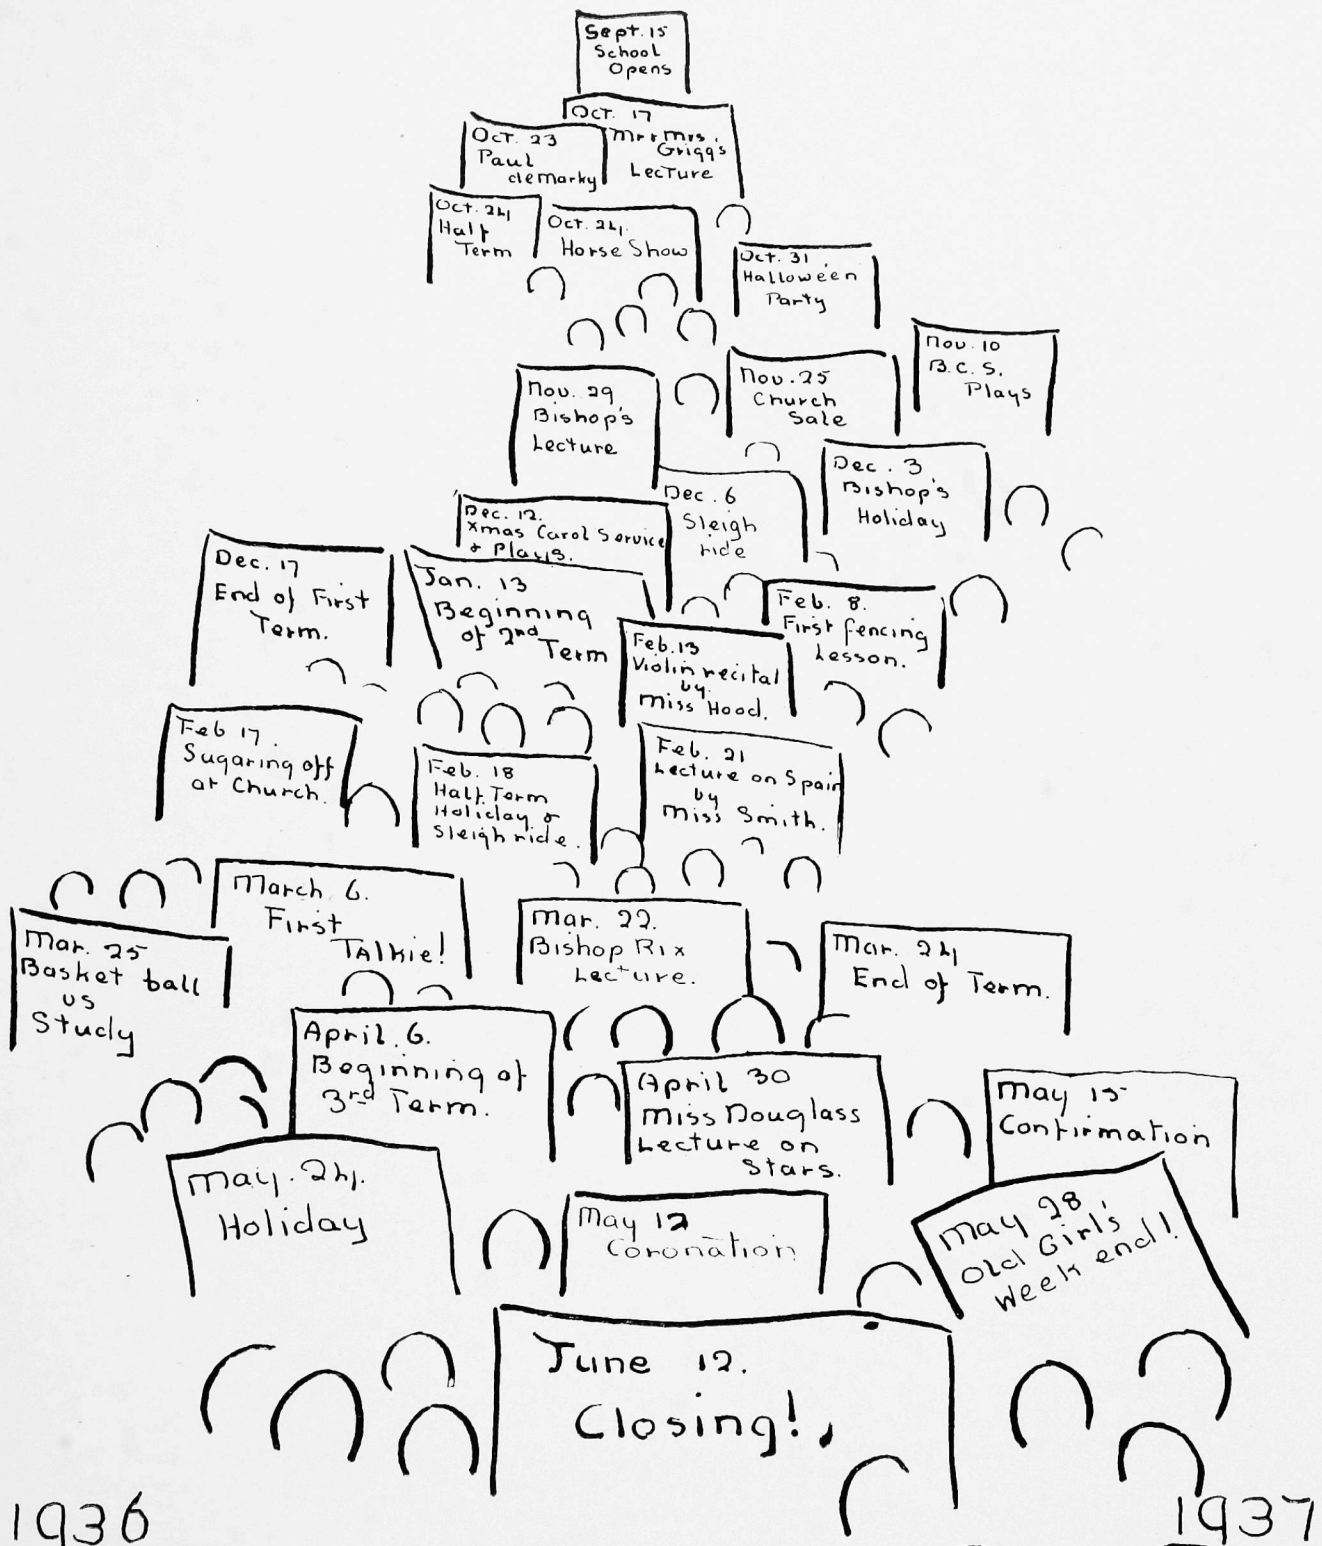 Sept. 15
School
Opens
Oct. 17
Mr & Mrs.
Grigg's
Lecture
Oct. 23
Paul
deMarky
Oct. 24
Half
Term
Oct. 24.
Horse Show
Oct. 31.
Halloween
Party
Nov. 10
B.C.S.
Plays
Nov. 25
Church
Sale
Nov. 29
Bishop's
Lecture
Dec. 3
Bishop's
Holiday
Dec. 6
Sleigh
ride
Dec. 12.
Xmas Carol Service
& Plays.
Dec. 17
End of First
Term.
Jan. 13
Beginning
of 2nd Term
Feb. 8.
First fencing
Lesson.
Feb. 13
Violin recital
by
Miss Hood.
Feb 17.
Sugaring off
at Church.
Feb. 18
Half Term
Holiday &
Sleigh ride.
Feb. 21
Lecture on Spain
by
Miss Smith.
March 6.
First
Talkie!
Mar. 22.
Bishop Rix
Lecture.
Mar. 24
End of Term.
Mar. 25
Basket ball
vs
Study
April. 6.
Beginning of
3rd Term.
April 30
Miss Douglass
Lecture on
Stars.
May 15
Confirmation
May. 24.
Holiday
May 12
Coronation
May 28
Old Girl's
Week end!
June 12.
Closing!
1936
1937